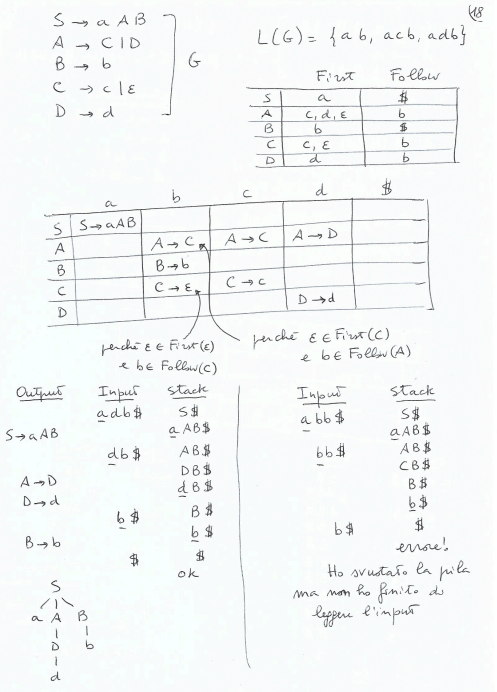 48
S → a A B
A → C | D
B → b
C → c | ε
D → d
G
L(G) = {ab, acb, adb}
First Follow
S a $
A c, d, ε b
B b $
C c, ε b
D d b
a b c d $
S S→aAB
A A→C A→C A→D
B B→b
C C→ε C→c
D D→d
perché ε ∈ First(ε)
e b ∈ Follow(C)
perché ε ∈ First(C)
e b ∈ Follow(A)
Output Input Stack
adb$ S$
S→aAB aAB$
db$ AB$
DB$
A→D dB$
D→d
b$ B$
b$
B→b
$ $
ok
S
a A B
D b
d
Input Stack
abb$ S$
aAB$
bb$ AB$
CB$
B$
b$
b$ $
errore!
Ho svuotato la pila
ma non ho finito di
leggere l'input